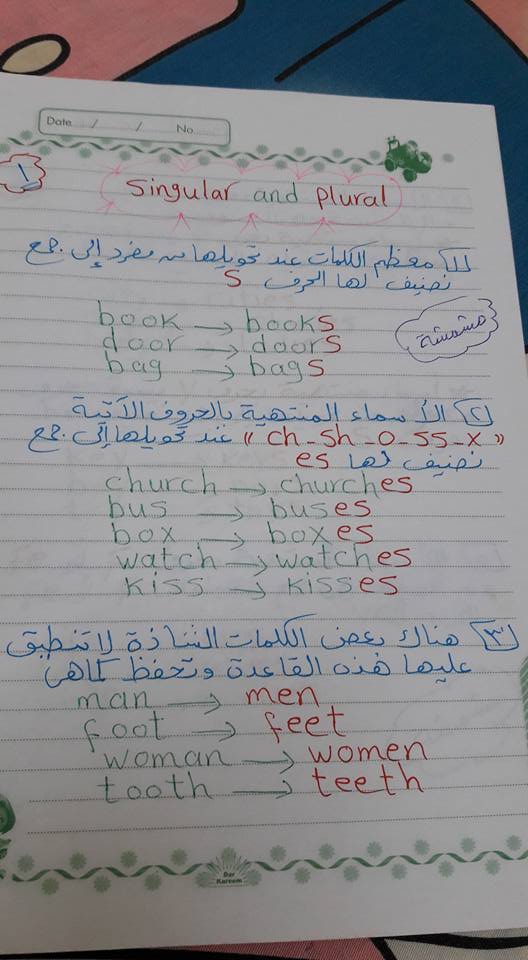 Date / / No.
١
Singular and Plural
١ معظم الكلمات عند تحويلها من مفرد إلى جمع
نضيف لها الحرف S
book → books
door → doors
bag → bags
مشمشة
٢ الأسماء المنتهية بالحروف الآتية
« ch - sh - o - ss - x » عند تحويلها إلى جمع
نضيف لها es
church → churches
bus → buses
box → boxes
watch → watches
kiss → kisses
٣ هناك بعض الكلمات الشاذة لا تنطبق
عليها هذه القاعدة وتحفظ كما هى
man → men
foot → feet
woman → women
tooth → teeth
Dar
Kareem